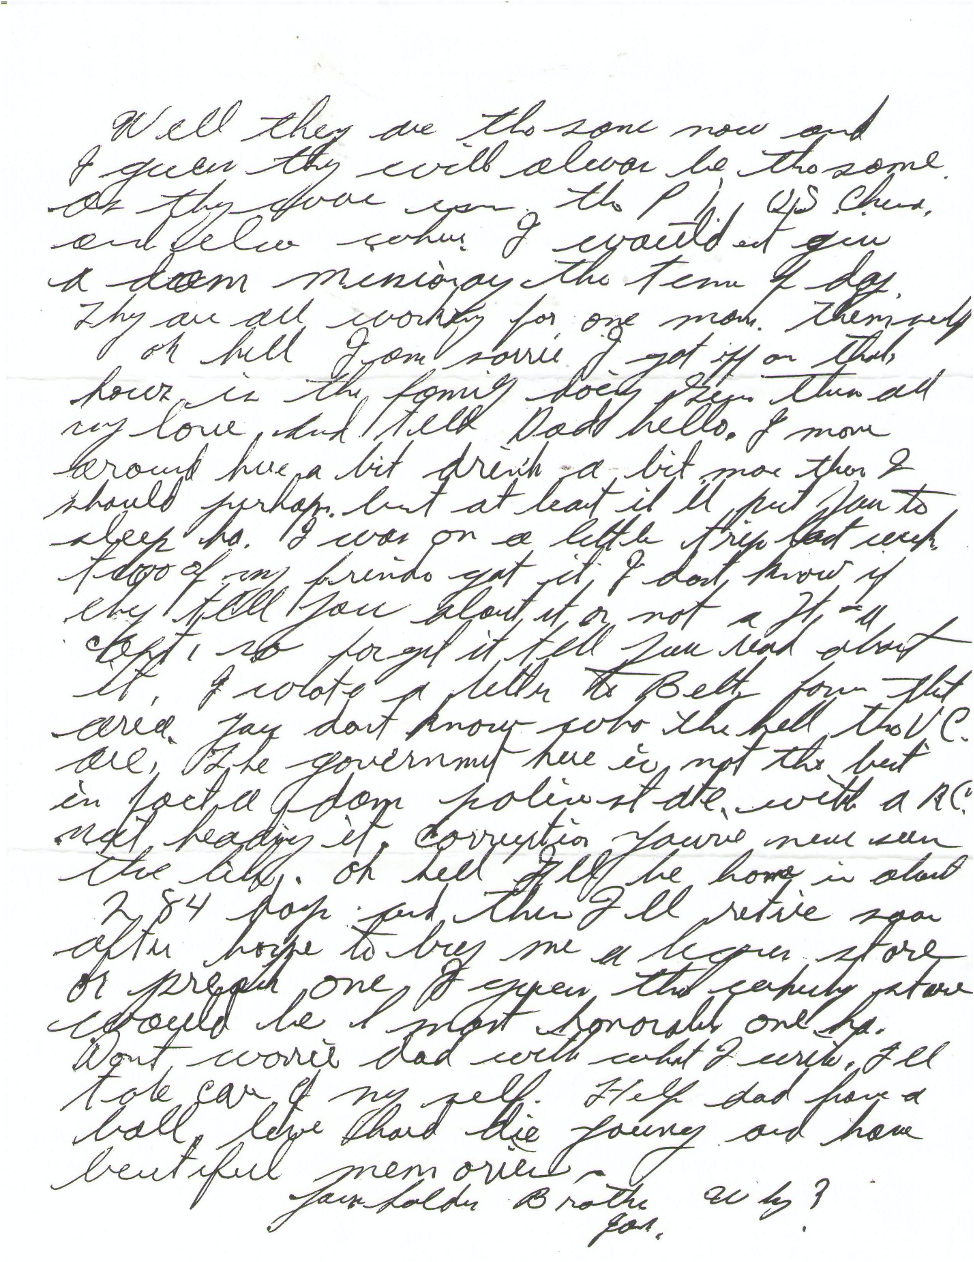 Well they are the same now and
I guess thy will alwas be the same.
as thy are in the P I, US. China,
and else where I would ent give
a dam the time of day.
Thy are all working for one man. Themself
oh hell I am sorrie I got off on that,
how is the family doing give them all
my love, and tell Dad hello. I move
around here a bit drink a bit more then I
should perhaps. but at least it ll put you to
sleep ha. I was on a little trip last week
two of my friends got it, I dont know if
they tell you about it or not a
so forget it tell you read about
it, I wrote a letter to Bett from that
area. you dont know who the hell the VC.
are, The government here is not the best
in fact a dam police state with a RC.
nut heading it. corruption you've never seen
the like. oh hell I'll be home in about
284 days and then I'll retire soon
after hope to buy me a liquor store
or preach one I guess the store
would be most honorable one ha.
Dont worrie dad with what I write, I'll
take car of my self. Help dad have a
ball, live hard die young and have
beautiful memories
Your Brother Why?